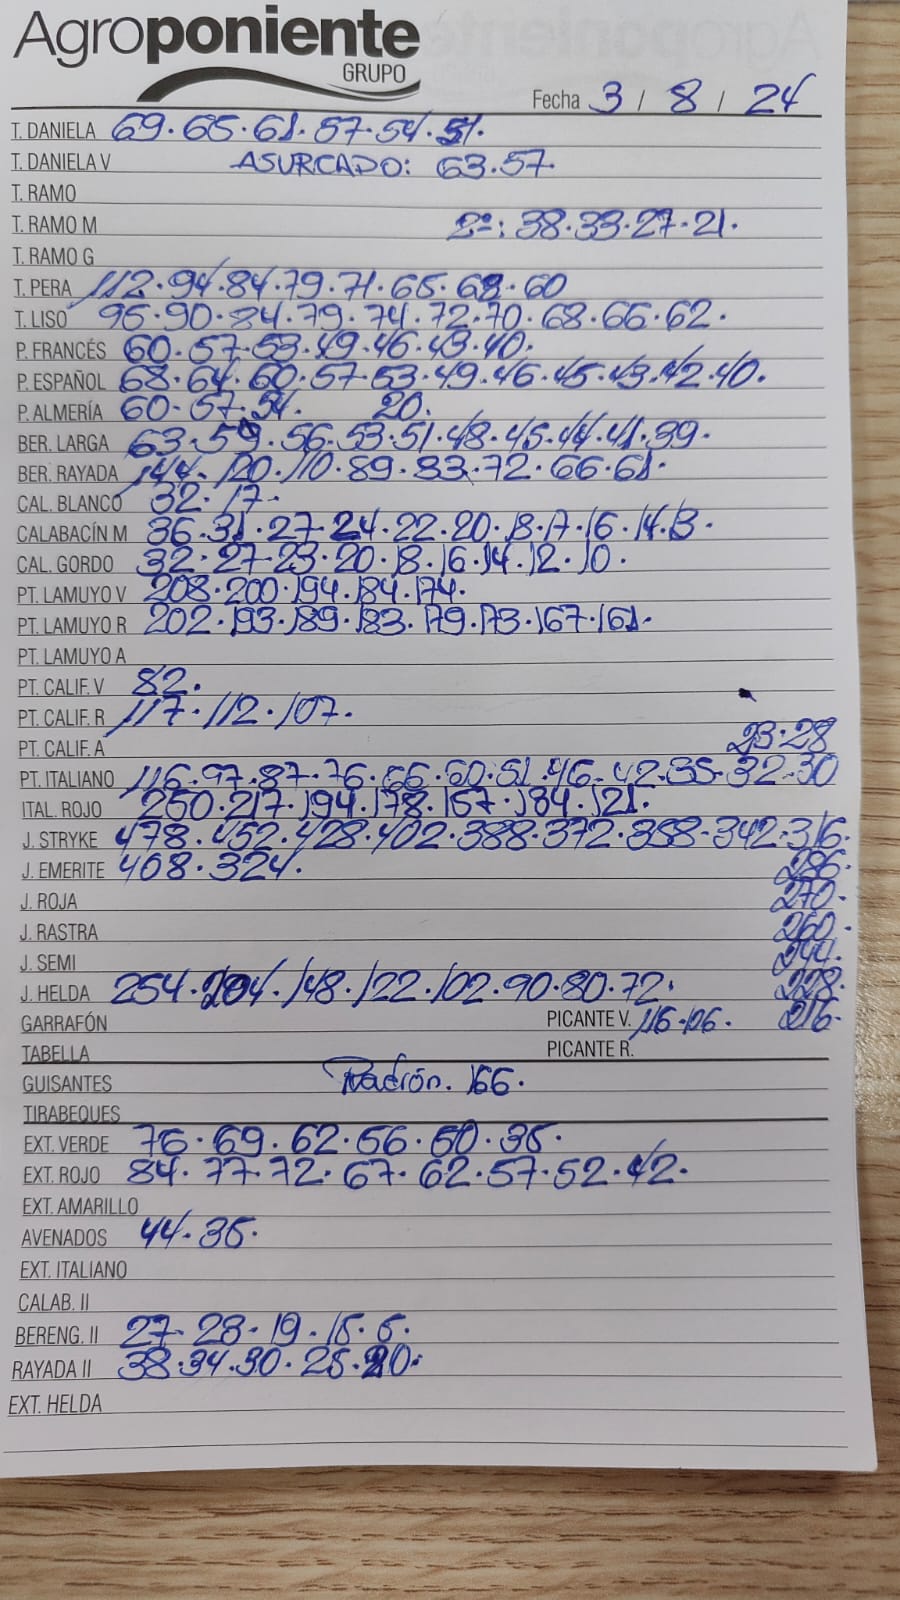 Agroponiente
GRUPO
Fecha 3 / 8 / 24
T. DANIELA 69. 65. 61. 57. 54. 51.
T. DANIELA V ASURCADO: 63.57.
T. RAMO
T. RAMO M 2ª: 38.33.27.21.
T. RAMO G
T. PERA 112.94.84.79.71.65.68.60
T. LISO 95.90.84.79.74.72.70.68.66.62.
P. FRANCÉS 60.57.53.49.46.43.40.
P. ESPAÑOL 68.64.60.57.53.49.46.45.43.42.40.
P. ALMERÍA 60.57.54. 20.
BER. LARGA 63.59.56.53.51.48.45.44.41.39.
BER. RAYADA 144.120.110.89.83.72.66.61.
CAL. BLANCO 32.17.
CALABACÍN M 36.31.27.24.22.20.18.17.16.14.13.
CAL. GORDO 32.27.23.20.18.16.14.12.10.
PT. LAMUYO V 208.200.194.184.174.
PT. LAMUYO R 202.193.189.183.179.173.167.161.
PT. LAMUYO A
PT. CALIF. V 82.
PT. CALIF. R 117.112.107.
PT. CALIF. A 23.28
PT. ITALIANO 116.97.87.76.66.60.51.46.42.35.32.30
ITAL. ROJO 250.217.194.178.157.134.121.
J. STRYKE 478.452.428.402.388.372.358.342.316.
J. EMERITE 408.324. 286.
J. ROJA 270.
J. RASTRA 260.
J. SEMI 244.
J. HELDA 254.204.148.122.102.90.80.72. 228.
GARRAFÓN PICANTE V. 116.106. 216.
TABELLA PICANTE R.
GUISANTES Padrón. 166.
TIRABEQUES
EXT. VERDE 76.69.62.56.50.35.
EXT. ROJO 84.77.72.67.62.57.52.42.
EXT. AMARILLO
AVENADOS 44.35.
EXT. ITALIANO
CALAB. II
BERENG. II 27.23.19.15.5.
RAYADA II 38.34.30.25.20.
EXT. HELDA